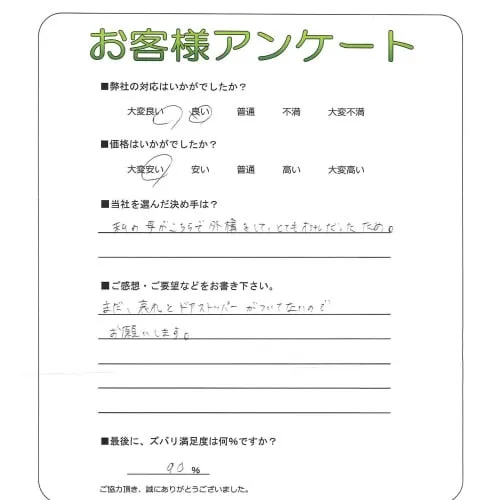 お客様アンケート
■弊社の対応はいかがでしたか？
大変良い 良い 普通 不満 大変不満
■価格はいかがでしたか？
大変安い 安い 普通 高い 大変高い
■当社を選んだ決め手は？
私の母がこちらで外構をして、とても だした ため。
■ご感想・ご要望などをお書き下さい。
まだ、表札とドアストッパーがついてないので
お願いします。
■最後に、ズバリ満足度は何％ですか？
90 ％
ご協力頂き、誠にありがとうございました。